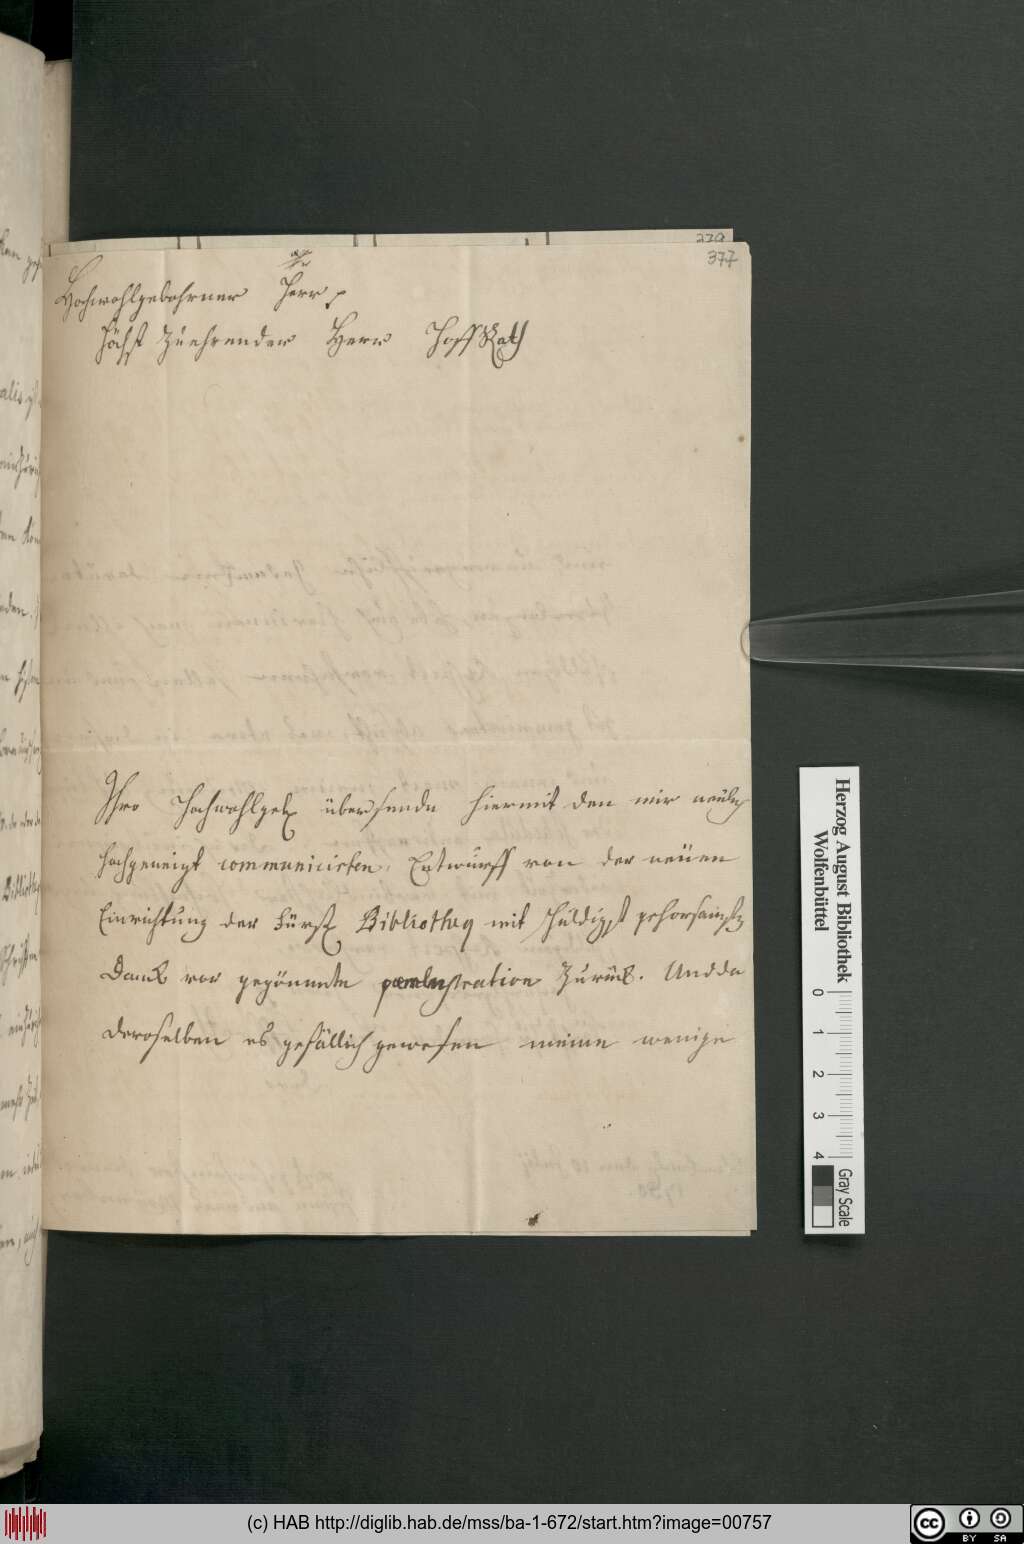 377
Hochwohlgebohrner Herr
Höchst Zuehrender Herr Hoff Rath
Ihro Hochwohlgeb übersende hiermit den mir neulich
hochgeneigt communicirten Entwurff von der neüen
Einrichtung der Fürstl Bibliotheq mit schuldigst gehorsamsten
Danck vor gegönnte perlustration Zurück. Und da
Deroselben es gefällich gewesen meine wenige
Herzog August Bibliothek
Wolfenbüttel
0 1 2 3 4
Gray Scale
(c) HAB http://diglib.hab.de/mss/ba-1-672/start.htm?image=00757
cc BY SA